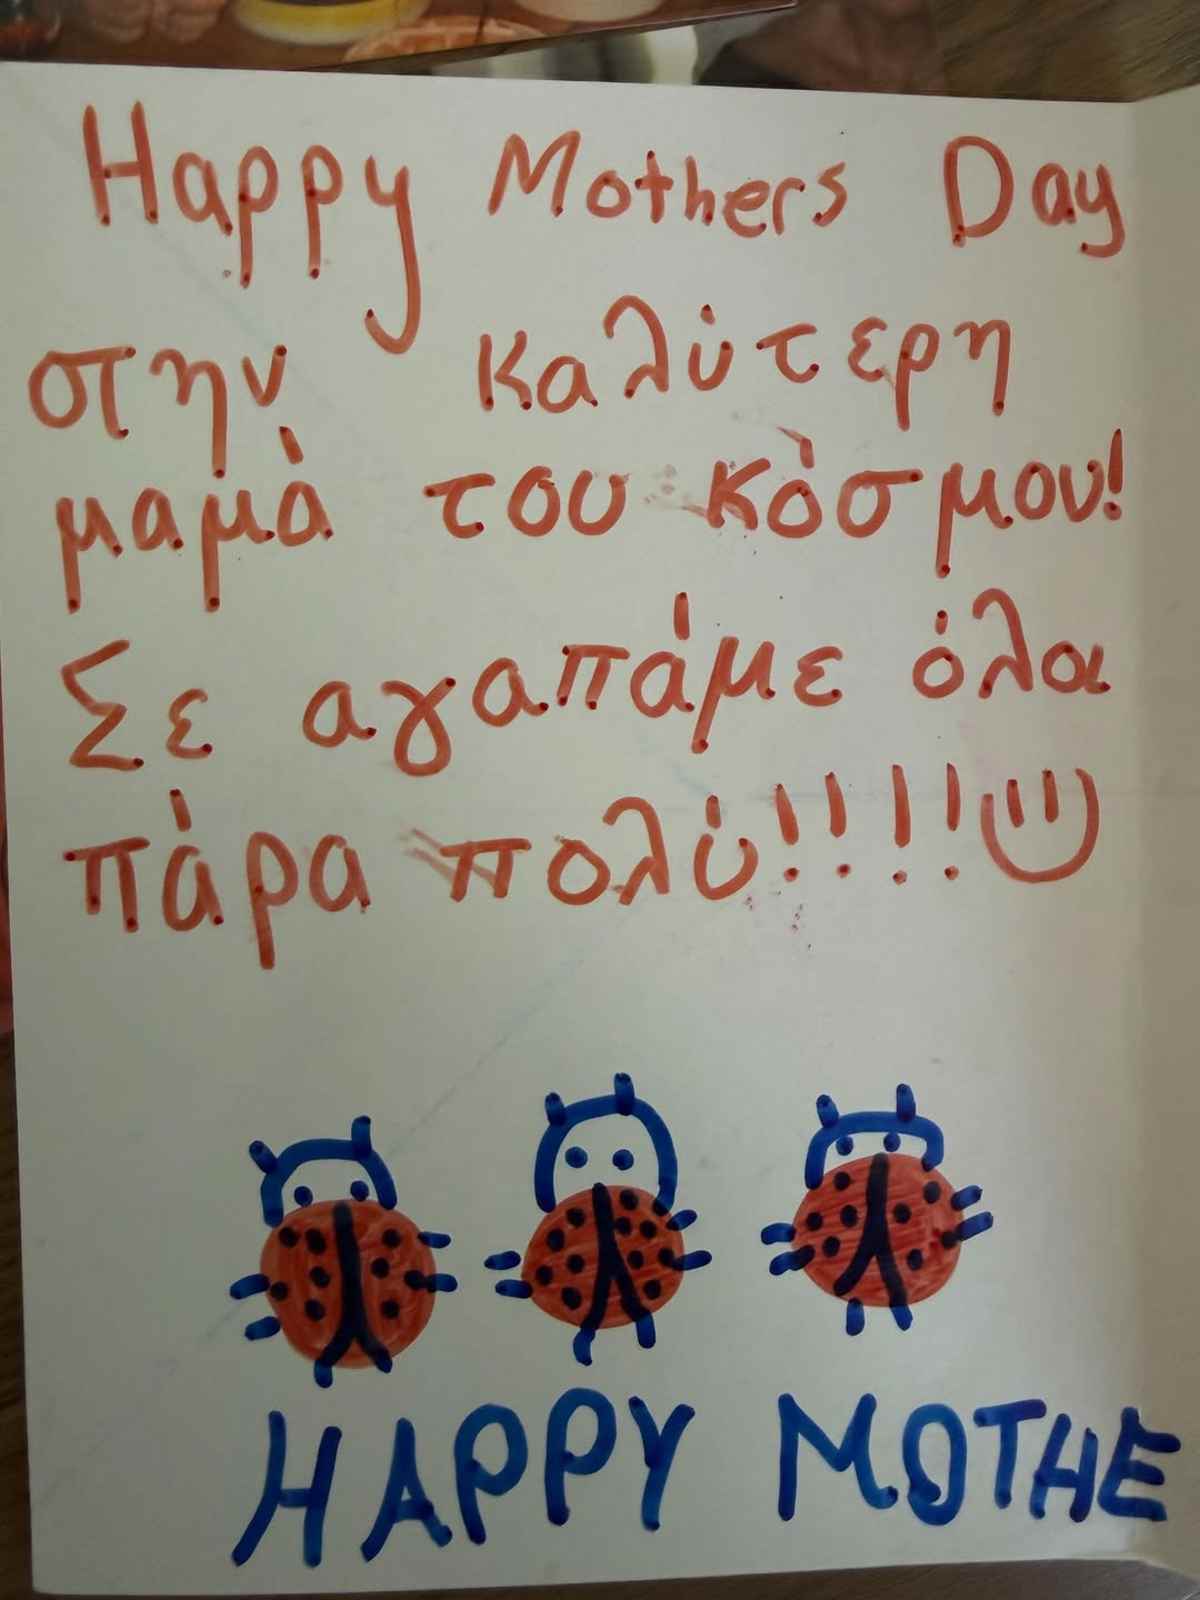 Happy Mothers Day
στην καλύτερη
μαμά του κόσμου!
Σε αγαπάμε όλα
πάρα πολύ!!!!
HAPPY MOTHE